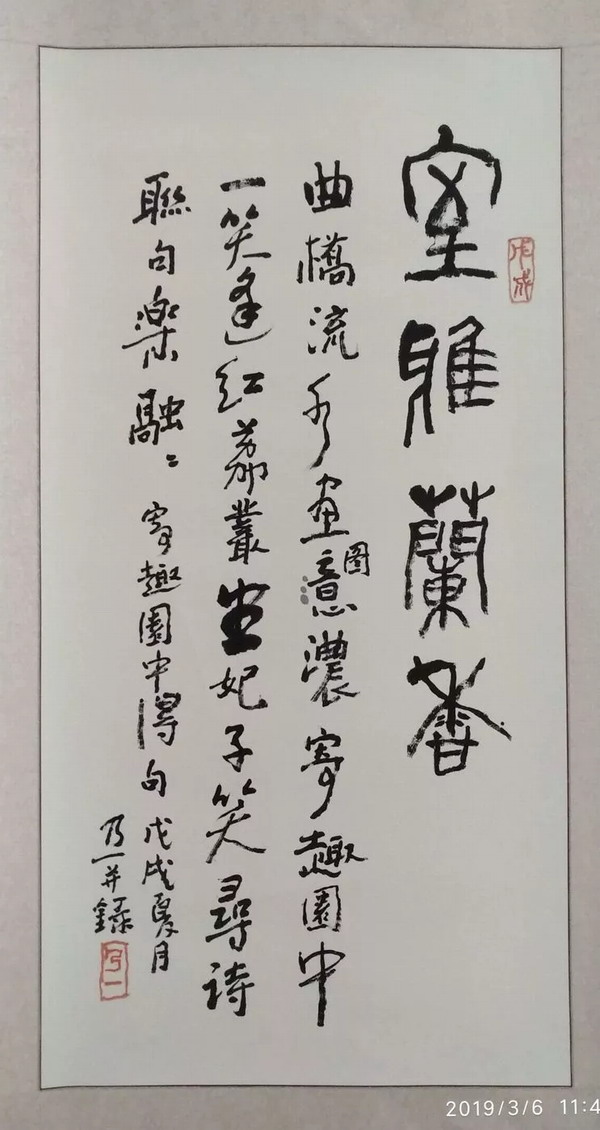 戊戌
室雅蘭香
曲橋流水画圖意濃寄趣園中
一笑逢红荔叢妃子笑尋詩
聯句樂融〻寄趣園中得句戊戌夏月
乃一并錄
乃一
2019/3/6 11:4